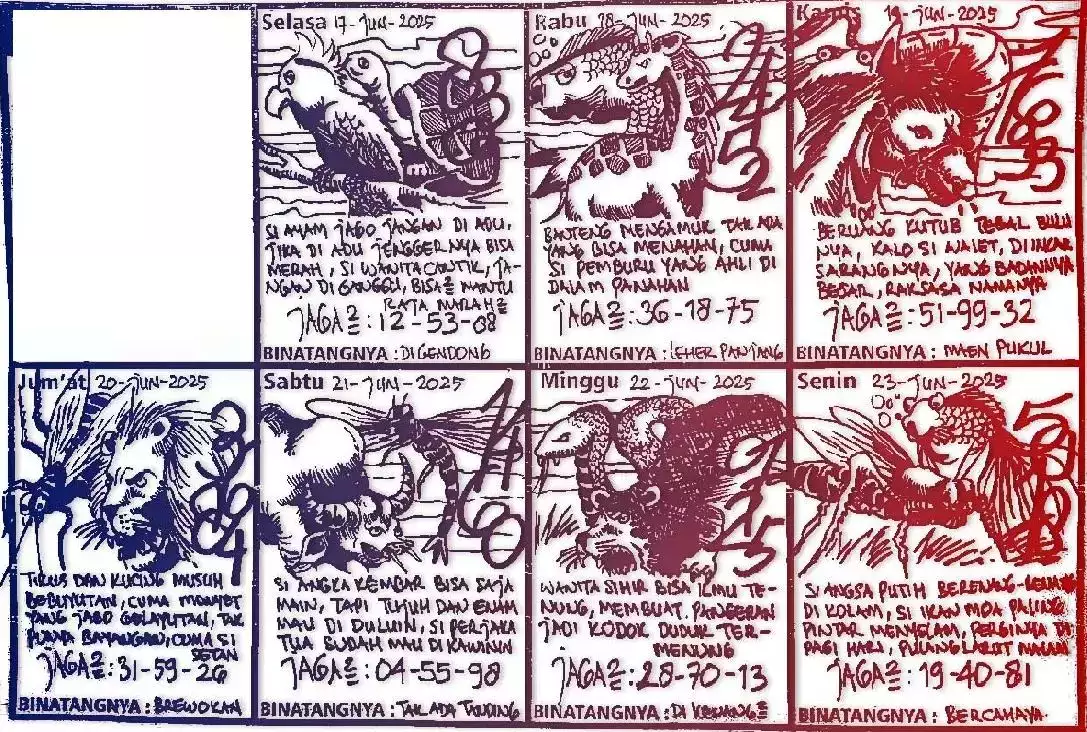 Selasa 17-JUN-2025
SI AYAM JAGO JANGAN DI ADU,
JIKA DI ADU JENGGERNYA BISA
MERAH, SI WANITA CANTIK, JA-
NGAN DI GANGGU, BISA2 MANTU
RATA MARAH2
JAGA2: 12-53-08
BINATANGNYA : DIGENDONG
Rabu 18-JUN-2025
BANTENG MENGAMUK TAK ADA
YANG BISA MENAHAN, CUMA
SI PEMBURU YANG AHLI DI
DALAM PANAHAN
JAGA2: 36-18-75
BINATANGNYA : LEHER PANJANG
Kamis 19-JUN-2025
BERUANG KUTUB TEBAL BULU
NYA, KALO SI WALET, DIINCAR
SARANGNYA, YANG BADANNYA
BESAR, RAKSASA NAMANYA
JAGA2: 51-99-32
BINATANGNYA : MAEN PUKUL
Jum'at 20-JUN-2025
TIKUS DAN KUCING MUSUH
BEBUYUTAN, CUMA MONYET
YANG JAGO GELAYUTAN, TAK
PUNYA BAYANGAN, CUMA SI
SETAN
JAGA2: 31-59-26
BINATANGNYA : BREWOKAN
Sabtu 21-JUN-2025
SI ANGKA KEMBAR BISA SAJA
MAIN, TAPI TUJUH DAN ENAM
MAU DI DULUIN, SI PERJAKA
TUA SUDAH MAU DI KAWININ
JAGA2: 04-55-98
BINATANGNYA : TAK ADA TANDING
Minggu 22-JUN-2025
WANITA SIHIR BISA ILMU TE-
NUNG, MEMBUAT PANGERAN
JADI KODOK DUDUK TER-
MENUNG
JAGA2: 28-70-13
BINATANGNYA : DI KENANG2
Senin 23-JUN-2025
SI ANGSA PUTIH BERENANG-RENANG
DI KOLAM, SI IKAN MOA PALING
PINTAR MENYELAM, PERGINYA
PAGI HARI, PULANG LARUT MALAM
JAGA2: 19-40-81
BINATANGNYA : BERCAHAYA.